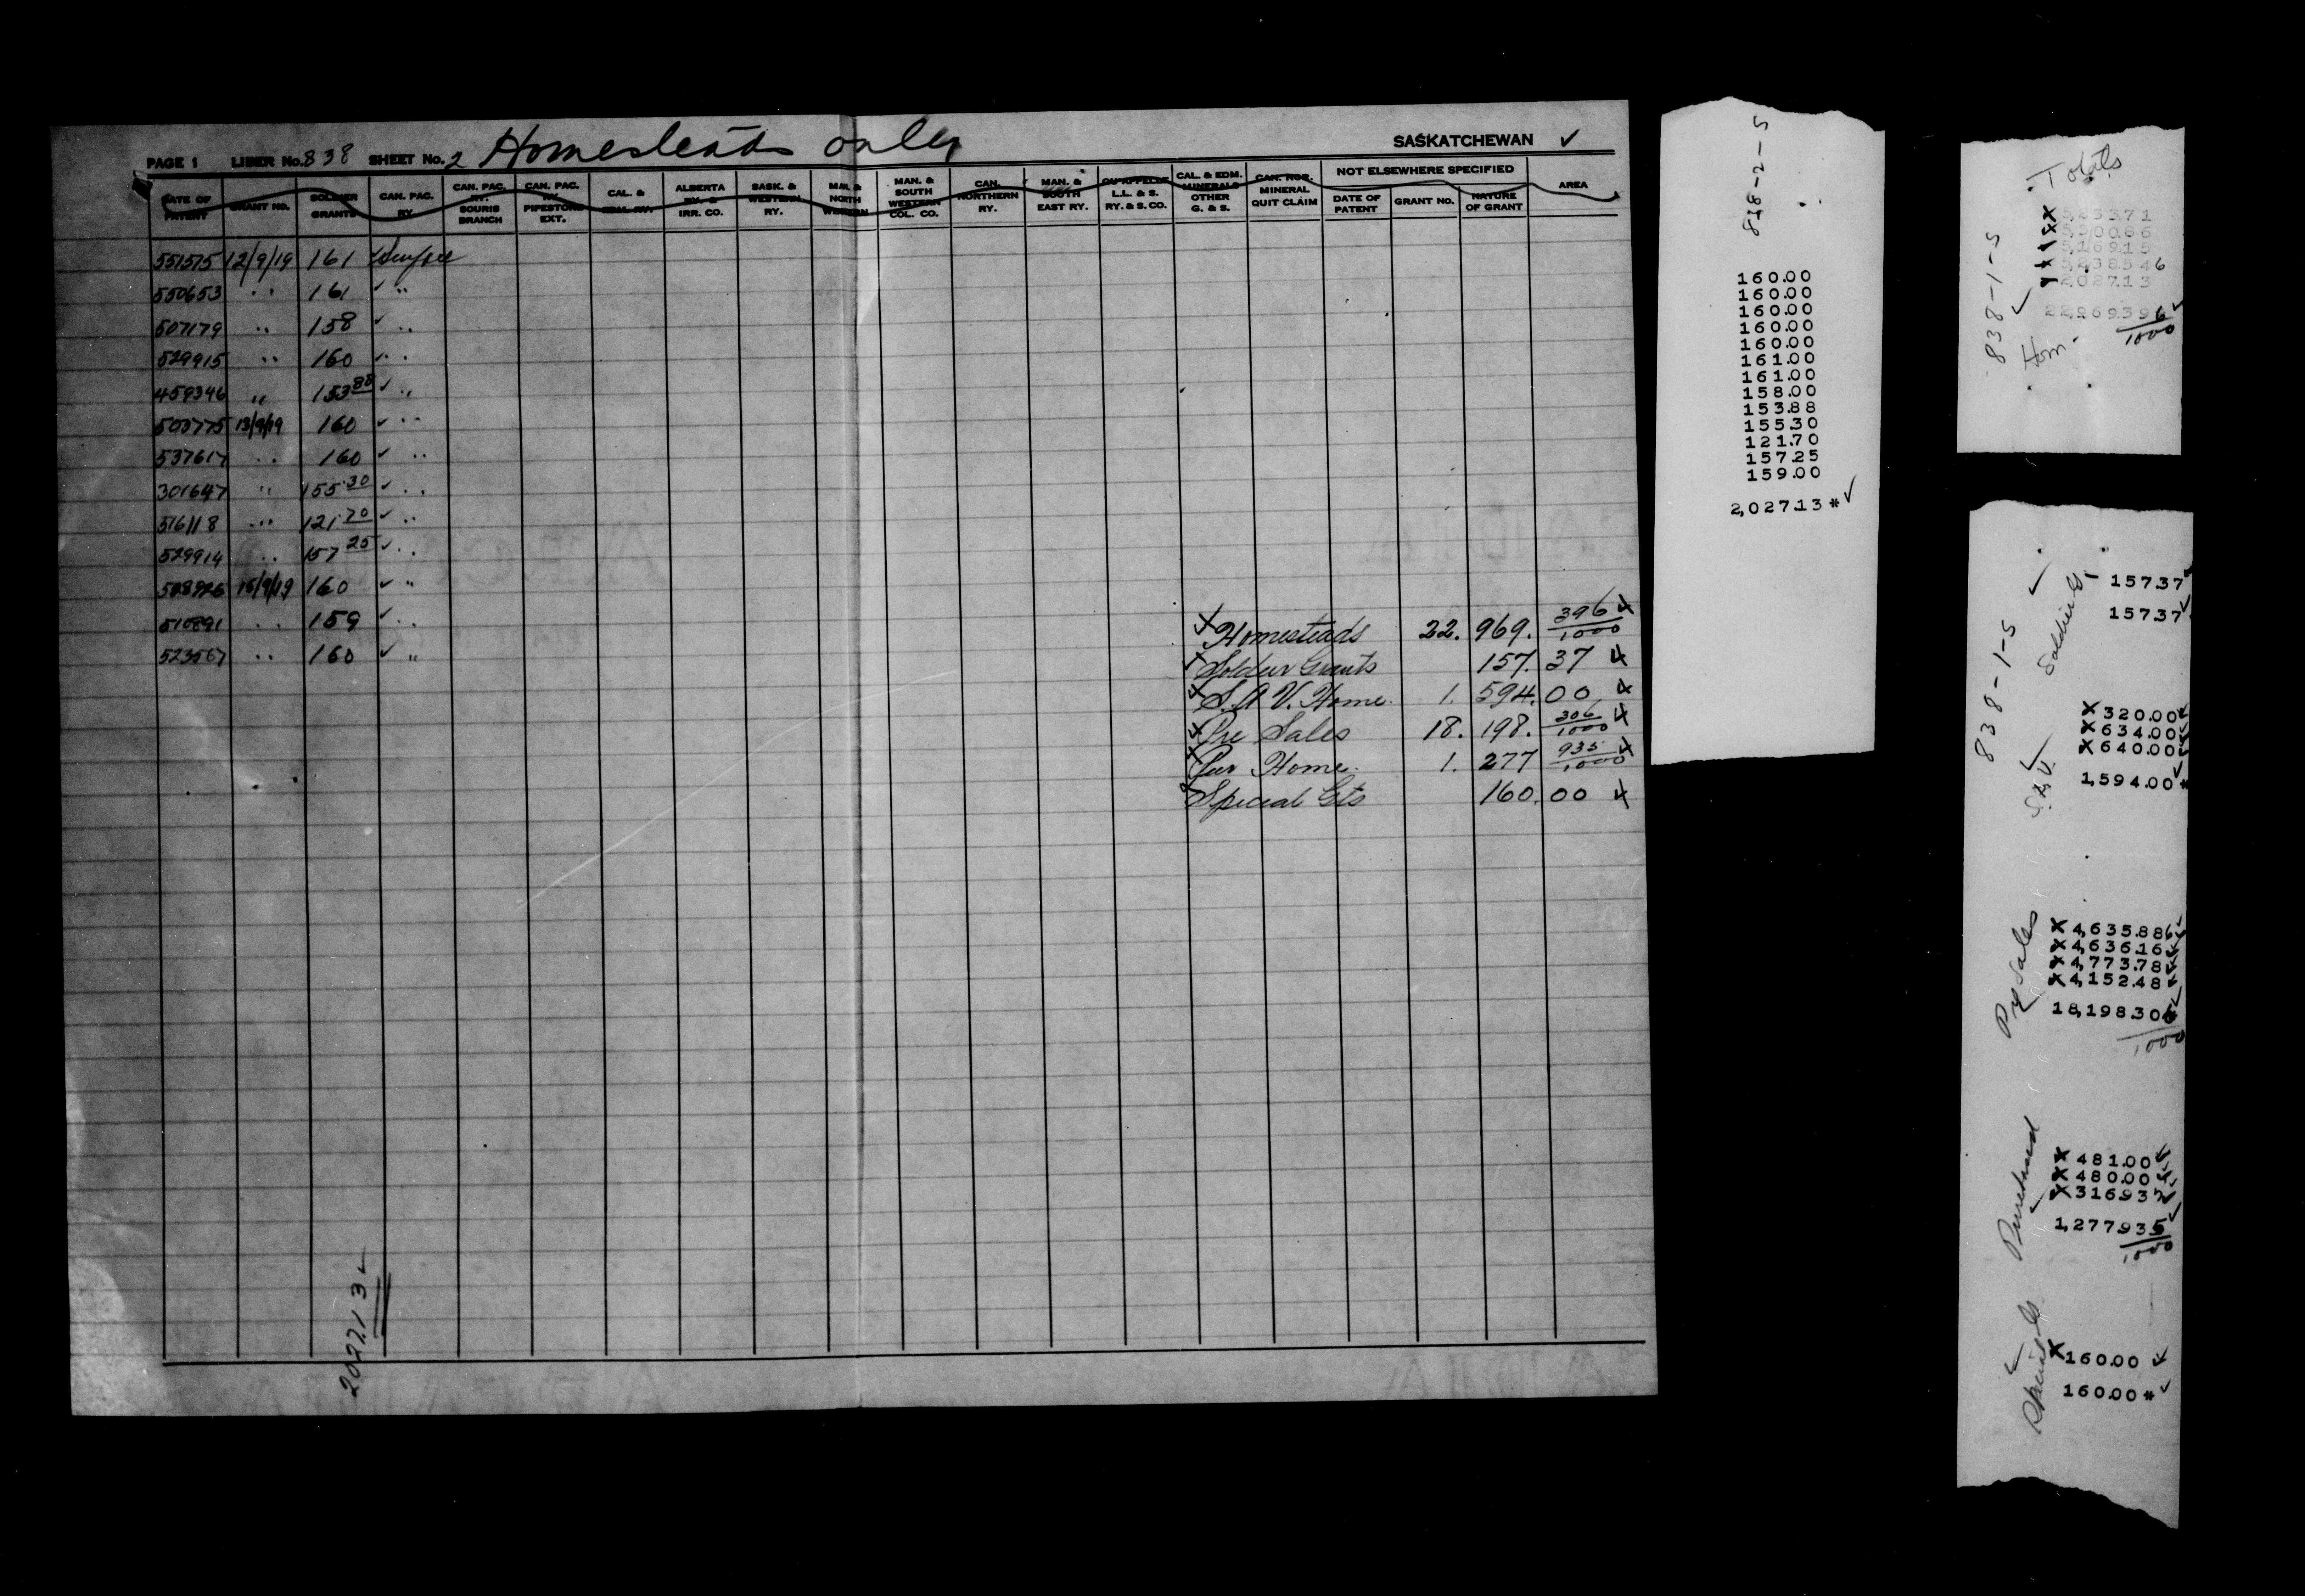 PAGE 1 LIBER No. 838 SHEET No. 2 Homesteads only SASKATCHEWAN ✓
DATE OF PATENT
GRANT NO.
SOLDIER GRANTS
CAN. PAC. RY.
CAN. PAC. RY. SOURIS BRANCH
CAN. PAC. RY. PIPESTONE EXT.
CAL. & EDM. RY.
ALBERTA RY. & IRR. CO.
SASK. & WESTERN RY.
MAN. & NORTH WESTERN
MAN. & SOUTH WESTERN COL. CO.
CAN. NORTHERN RY.
MAN. & SOUTH EAST RY.
QU'APPELLE L.L. & S. RY. & S. CO.
CAL. & EDM. MINERALS OTHER G. & S.
CAN. NOR. MINERAL QUIT CLAIM
NOT ELSEWHERE SPECIFIED
DATE OF PATENT
GRANT NO.
NATURE OF GRANT
AREA
551575 12/9/19 161 ✓
550653 " 161 ✓ "
507179 " 158 ✓ "
529915 " 160 ✓ "
459346 " 153 88 ✓ "
503775 13/9/19 160 ✓ "
537617 " 160 ✓ "
301647 " 155 30 ✓ "
516118 " 121 70 ✓ "
529914 " 157 25 ✓ "
16/9/19 160 ✓ "
510891 " 159 ✓ "
523567 " 160 ✓ "
Homesteads 22. 969. 396/1000
Soldier Grants 157. 37
S.A.V. Home. 1. 594. 00
Pre Sales 18. 198. 306/1000
Pur Home. 1. 277 935/1000
Special Gts 160. 00
2027.13 ✓
838-2-S
160.00
160.00
160.00
160.00
160.00
161.00
161.00
158.00
153.88
155.30
121.70
157.25
159.00
2,027.13 * ✓
Totals
838-1-S
Hom.
5,169.15
2,027.13
22,969.396
1000
838-1-S
Soldiers
157.37
157.37
S.A.V.
320.00
634.00
640.00
1,594.00 *
Pre Sales
4,635.886
4,636.16
4,773.78
4,152.48
18,198.306
1000
Purchased
481.00
480.00
316.935
1,277.935
1000
Special Gts
160.00
160.00 *